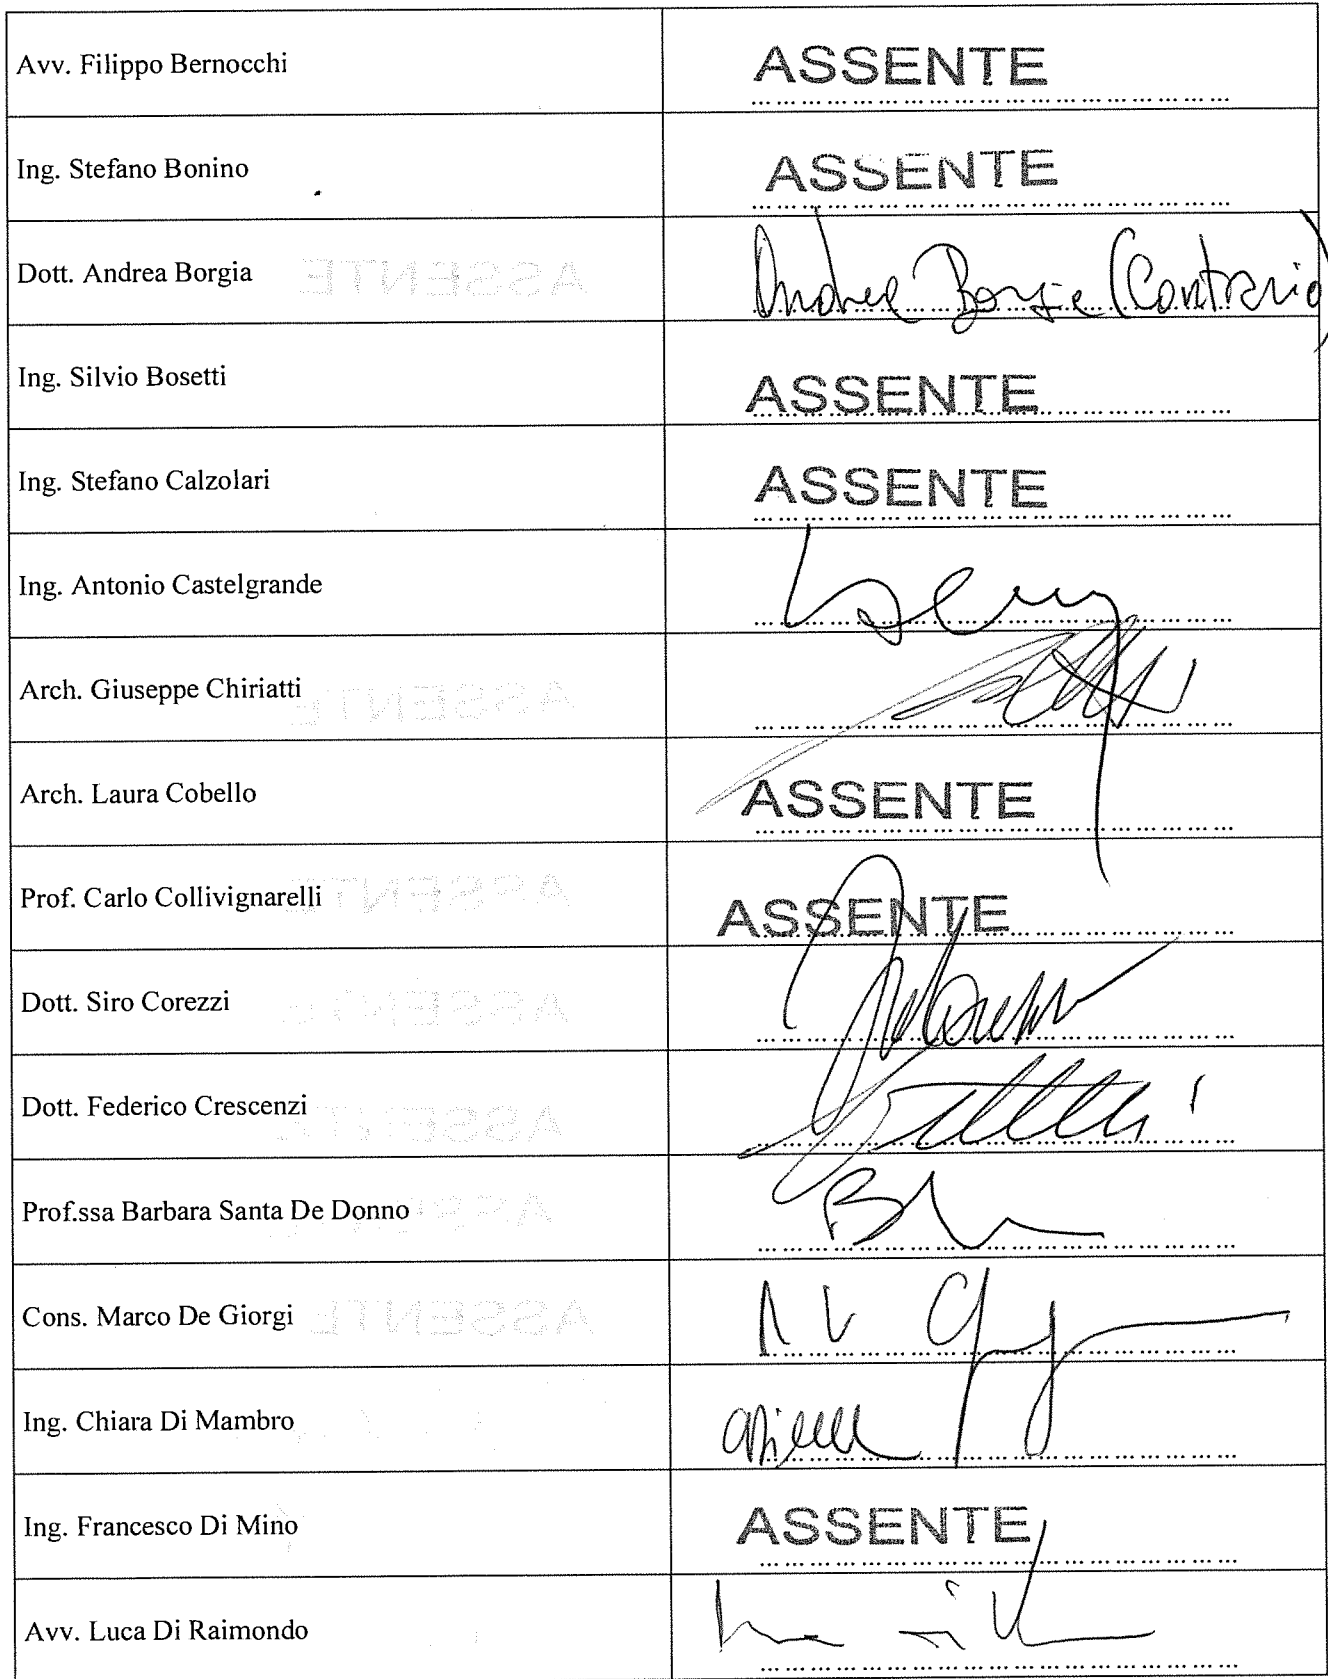 Avv. Filippo Bernocchi ASSENTE
Ing. Stefano Bonino ASSENTE
Dott. Andrea Borgia Andrea Borgia (Contrario)
Ing. Silvio Bosetti ASSENTE
Ing. Stefano Calzolari ASSENTE
Ing. Antonio Castelgrande
Arch. Giuseppe Chiriatti
Arch. Laura Cobello ASSENTE
Prof. Carlo Collivignarelli ASSENTE
Dott. Siro Corezzi
Dott. Federico Crescenzi
Prof.ssa Barbara Santa De Donno
Cons. Marco De Giorgi
Ing. Chiara Di Mambro
Ing. Francesco Di Mino ASSENTE
Avv. Luca Di Raimondo